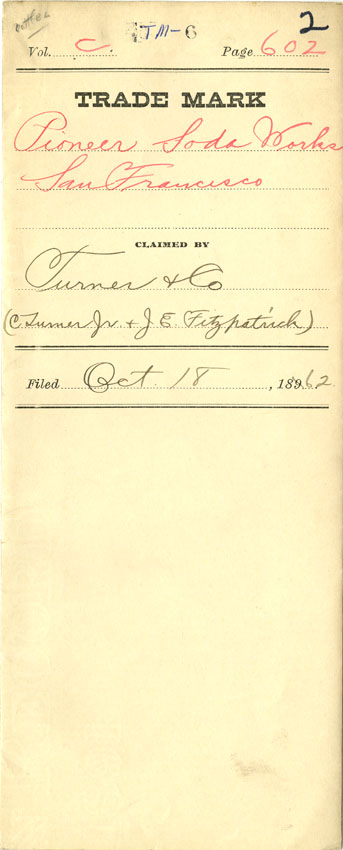 bottles 2
TM-6
Vol. C. Page 602
TRADE MARK
Pioneer Soda Works
San Francisco
CLAIMED BY
Turner & Co
(C Turner Jr. & J. E. Fitzpatrick)
Filed Oct. 18, 1862.